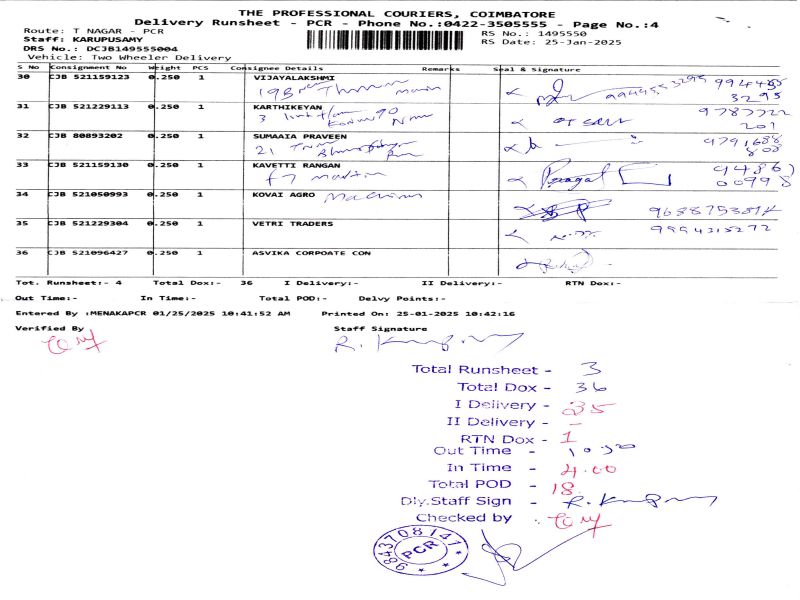 THE PROFESSIONAL COURIERS, COIMBATORE
Delivery Runsheet - PCR - Phone No.:0422-3505555 - Page No.:4
Route: T NAGAR - PCR
RS No.: 1495550
Staff: KARUPUSAMY
RS Date: 25-Jan-2025
DRS No.: DCJB149555004
Vehicle: Two Wheeler Delivery
S No Consignment No Weight PCS Consignee Details Remarks Seal & Signature
30 CJB 521159123 0.250 1 VIJAYALAKSHMI
9944553295 994455
3295
31 CJB 521229113 0.250 1 KARTHIKEYAN
9787722
201
32 CJB 80893202 0.250 1 SUMAAIA PRAVEEN
21
9791688
808
33 CJB 521159130 0.250 1 KAVETTI RANGAN
9486)
00998
34 CJB 521050993 0.250 1 KOVAI AGRO
35 CJB 521229304 0.250 1 VETRI TRADERS
9994315272
36 CJB 521096427 0.250 1 ASVIKA CORPOATE CON
Tot. Runsheet:- 4 Total Dox:- 36 I Delivery:- II Delivery:- RTN Dox:-
Out Time:- In Time:- Total POD:- Delvy Points:-
Entered By :MENAKAPCR 01/25/2025 10:41:52 AM Printed On: 25-01-2025 10:42:16
Verified By Staff Signature
Total Runsheet - 3
Total Dox - 36
I Delivery - 35
II Delivery - -
RTN Dox - 1
Out Time - 10.30
In Time - 4.00
Total POD - 18
Dly.Staff Sign -
Checked by -
9843708141
PCR